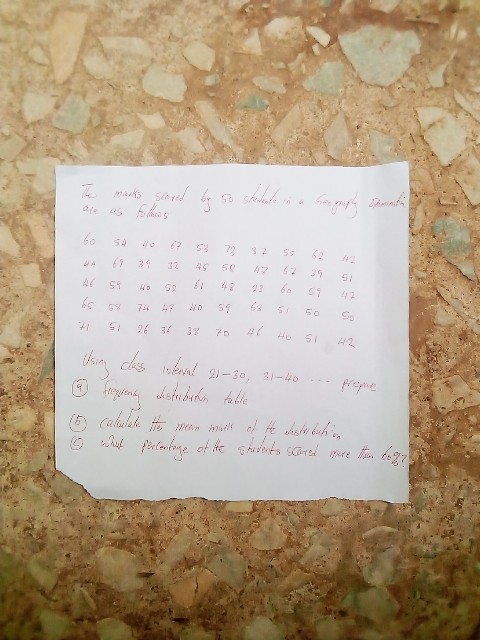 The marks scored by 50 students in a Geography
are as follows
60 54 40 67 53 73 37 55 62 42
44 69 39 32 45 58 48 67 39 51
46 59 40 52 61 48 23 60 59 47
65 58 74 47 40 59 68 51 50 50
71 51 26 36 38 70 46 40 51 42
Using class interval 21-30, 31-40 ---- prepare
(a) frequency distribution table
(b) calculate the mean mark of the distribution
(c) what percentage of the students scored more than 60%?